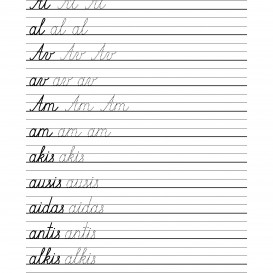 Al Al Al
al al al
Av Av Av
av av av
Am Am Am
am am am
akis akis
ausis ausis
aidas aidas
antis antis
alkis alkis